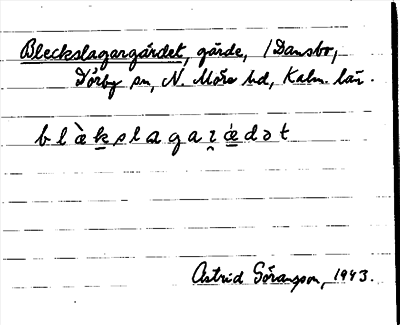 Bleckslagargärdet, gärde, / Dansbo,
Dörby sn, N. Möre hd, Kalm. län.
blæ̀k̠slagaɀ̯ǽ̠dət
Astrid Göransson, 1943.